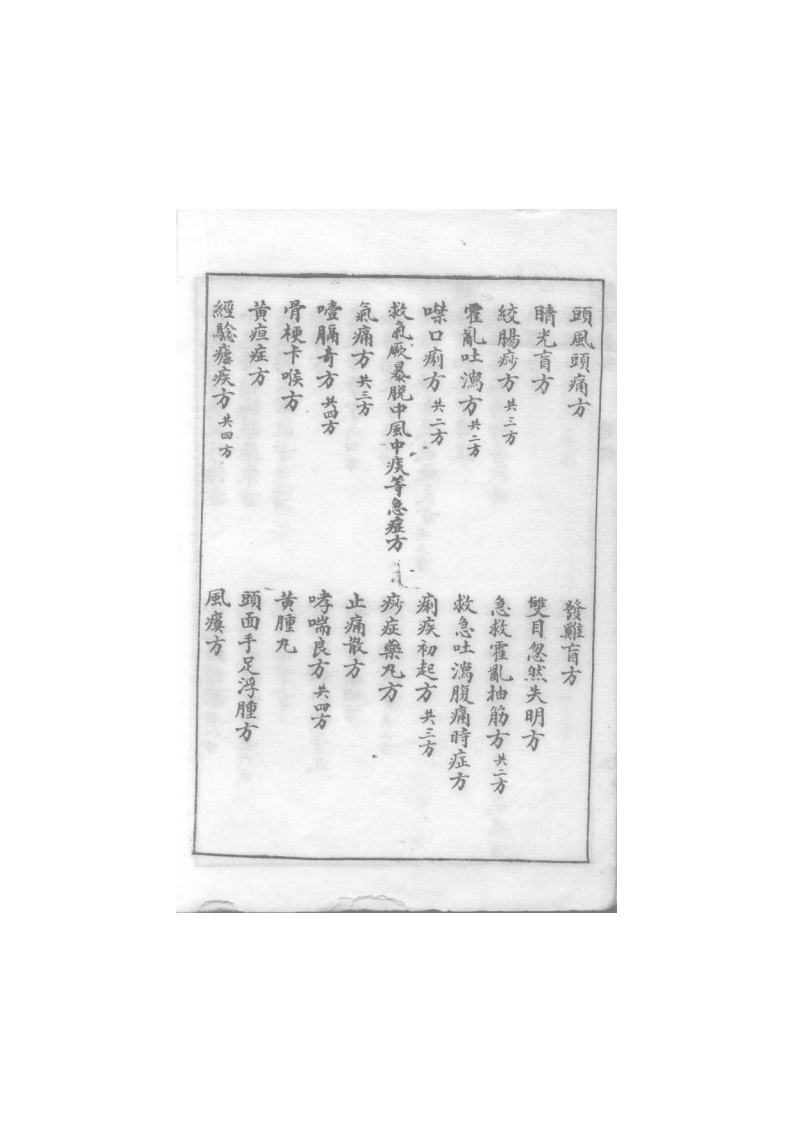 頭風頭痛方
睛光盲方
絞腸痧方 共三方
霍亂吐瀉方 共二方
噤口痢方 共二方
救氣厥暴脱中風中痰等急症方
氣痛方 共三方
噎膈奇方 共四方
骨梗卡喉方
黄疸症方
經驗瘧疾方 共四方
發雞盲方
雙目忽然失明方
急救霍亂抽筋方 共二方
救急吐瀉腹痛時症方
痢疾初起方 共三方
痧症藥丸方
止痛散方
哮喘良方 共四方
黄腫丸
頭面手足浮腫方
風方